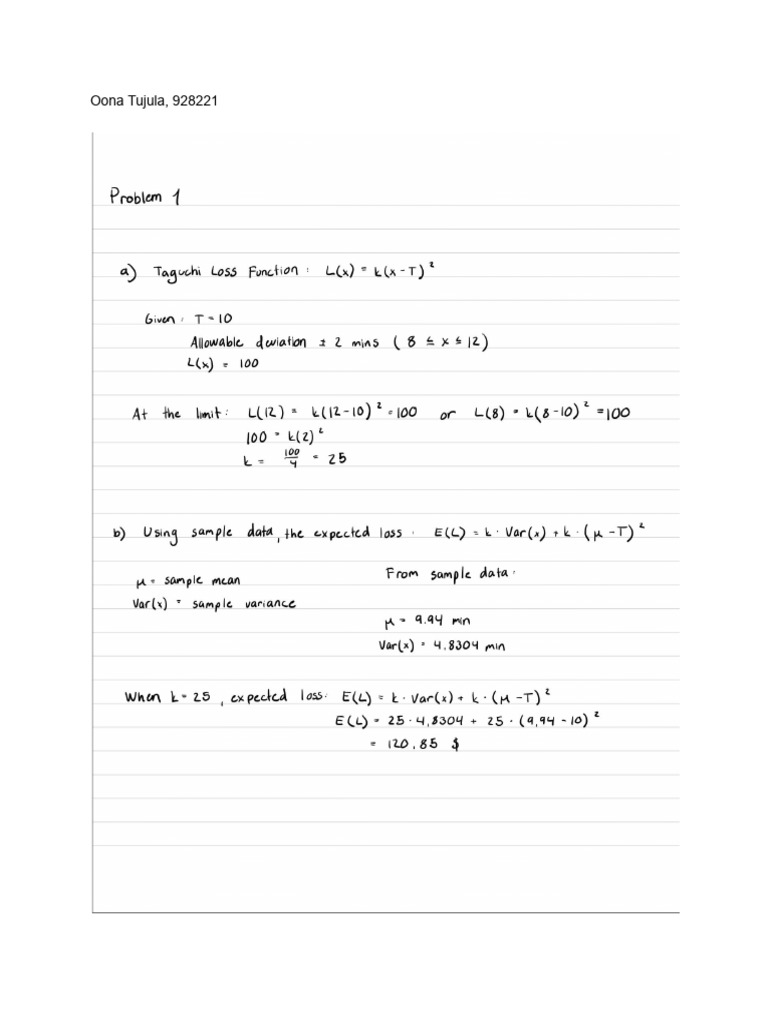 Oona Tujula, 928221
Problem 1
a) Taguchi Loss Function: L(x) = k(x-T)²
Given: T = 10
Allowable deviation ± 2 mins ( 8 ≤ x ≤ 12)
L(x) = 100
At the limit: L(12) = k(12-10)² = 100 or L(8) = k(8-10)² = 100
100 = k(2)²
k = 100/4 = 25
b) Using sample data, the expected loss: E(L) = k · Var(x) + k · (μ - T)²
μ = sample mean
From sample data:
Var(x) = sample variance
μ = 9.94 min
Var(x) = 4,8304 min
When k = 25, expected loss: E(L) = k · Var(x) + k · (μ - T)²
E(L) = 25 · 4,8304 + 25 · (9,94 - 10)²
= 120.85 $